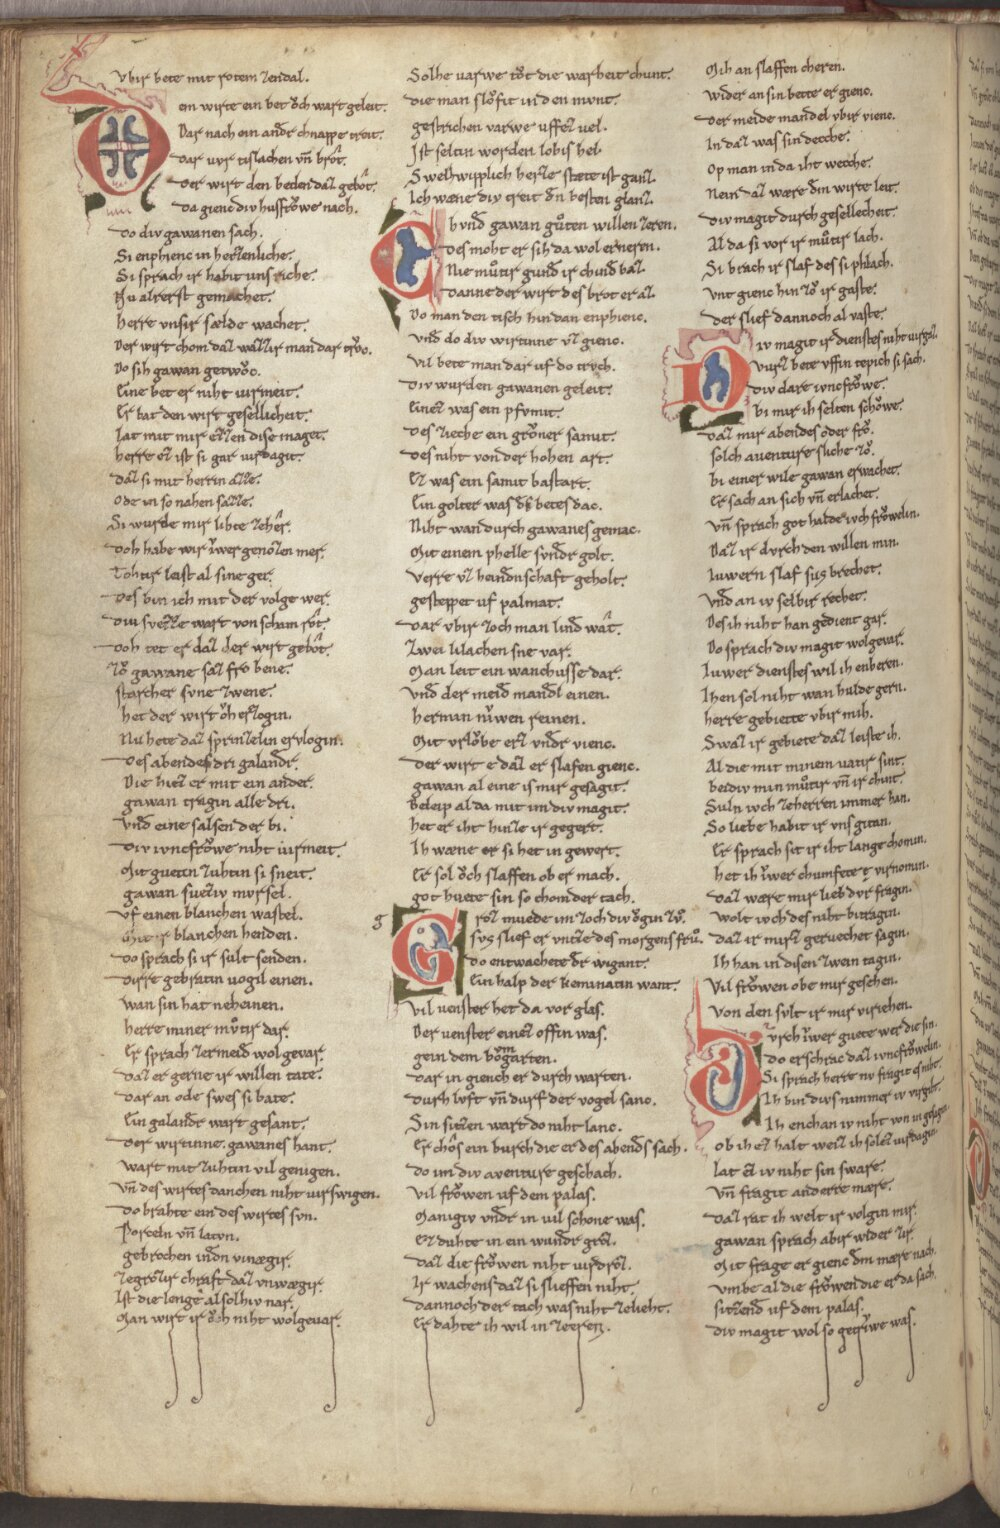 vbir bete mit rotem zendal.
Dem wirte ein bet ŏch wart geleit.
Dar nach ein andr̄ chnappe treit.
Dar vvr tislachen vn̄ brôt.
Der wirt den beden daz gebôt.
Da gienc div husfrŏwe nach.
Do div gawanen sach.
Si enphienc in herzenliche.
Si sprach ir habit uns riche.
Nu alrerst gemachet.
herre vnsir sælde wachet.
Der wirt chom daz wazzir man dar trŏc.
Do sih gawan getwŏc.
Eine bet er niht virmeit.
Er bat den wirt gesellicheit.
Lat mit mir ezzen dise maget.
herre ez ist si gar virdagit.
daz si mit herrin azze.
Ode in so nahen sazze.
Si wurde mir lihte zehêr.
Doh habe wir îwer genozen mer.
Tohtir leist al sine ger.
Des bin ich mit der volge wer.
Div svezze wart von scham rôt.
Doh tet er daz der wirt gebôt.
Zŏ gawane saz fro bene.
starcher svne zwene.
het der wirt ŏh erzogin.
Nu hete daz sprinzelin ervlogin.
Des abendes dri galandr̄.
Die hiez er mit ein ander.
gawan tragin alle dri.
Vnd̄ eine salsen der bi.
Div ivncfrŏwe niht virmeit.
Mit guetin zuhtin si sneit.
gawan svezlv mvrsel.
Vf einen blanchen wastel.
Mit ir blanchen henden.
Do sprach si ir sult senden.
Dirre gebratin vogil einen.
wan sin hat neheinen.
herre miner mŭtir dar.
Er sprach zermeid wolgevar.
Daz er gerne ir willen tate.
Dar an ode swes si bate.
Ein galandr wart gesant.
Der wirtinne. gawanes hant.
wart mit zuhtin vil genigen.
Vn̄ des wirtes danchen niht virswigen.
Do brahte ein des wirtes svn.
Porceln vn̄ latvn.
gebrochen indn̄ vinægir.
Zegrozir chraft daz vnwægir.
Ist die lenge al solhiv nar.
Man wirt ir ŏch niht wolgevar.
Solhe varwe tŏt die warheit chunt.
die man slŏfit in den mvnt.
gestrichen varwe vffez vel.
Ist seltin worden lobis hel.
Swelh wiplich herze stæte ist ganz.
Ich wæne div treit dn̄ besten glanz.
Chvnd̄ gawan gŭten willen zeren.
Des moht er sih da wol erneren.
Nie mŭtir gund̄ ir chind baz.
Danne der wirt des brot er az.
Do man den tisch hin dan enphienc.
Vnd do div wirtinne vz gienc.
Vil bete man dar uf do trvch.
Div wurden gawanen geleit.
Einez was ein pfvmit.
Des zieche ein grŏner samit.
Des niht von der hohen art.
Ez was ein samit bastart.
Ein golter was dz betes dac.
Niht wan durch gawanes gemac.
Mit einem phelle svndr̄ golt.
Verre vz heidn̄schaft geholt.
gesteppet uf palmat.
Dar vbir zoch man lind wât.
Zwei lilachen sne var.
Man leit ein wanchusse dar.
Vnd der meid mandl̄ einen.
hermin nŭwen reinen.
Mit vrlŏbe erz vndr̄ vienc.
Der wirt e daz er slafen gienc.
gawan al eine is mir gesagit.
Beleip alda mit im div magit.
het er iht hinze ir gegert.
Ih wæne er si het in gewert.
Er sol ŏch slaffen ob er mach.
got huete sin so chom der tach.
g
Groz muede im zoch div ŏgin zŏ.
svs slief er vntze des morgens frŭ.
do entwachete dr̄ wigant.
Ein halp der keminatin want.
Vil venster het da vor glas.
Der venster einez offin was.
gein dem bŏmgarten.
Dar in giench er durch warten.
Durh lvft vn̄ durf der vogel sanc.
Sin sitzen wart do niht lanc.
Er chôs ein burch die er des abends sach.
do im div aventure geschach.
Vil frŏwen uf dem palas.
Manigiv vndr̄ in vil schone was.
Ez duhte in ein wundr̄ groz.
Daz die frŏwen niht virdroz.
Ir wachens daz si slieffen niht.
Dannoch der tach was niht zelieht.
Er dahte ih wil in zeeren.
Mih an slaffen cheren.
Wider an sin bette er gienc.
Der meide mandel vbir vienc.
In daz was sin decche.
Op man in da iht wecche.
Nein daz wære dm̄ wirte leit.
Div magit durch gesellecheit.
Al da si vor ir mŭtir lach.
Si brach ir slaf des si phlach.
Vnt gienc hin zŏ ir gaste.
Der slief dannoch al vaste.
Div magit ir dienstes niht virgaz.
Vurz bete vffin tepich si saz.
Div clare ivncfrŏwe.
bi mir ih selten schŏwe.
Daz mir abendes oder frŭ.
solch aventure sliche zŏ.
bi einer wile gawan erwachet.
Er sach an sich vn̄ erlachet.
Vn̄ sprach got halde ivch frŏwelin.
Daz ir dvrch den willen min.
Iuwern slaf sus brechet.
Vnd an iv selbir rechet.
Des ih niht han gedient gar.
Do sprach div magit wolgevar.
Iuwer dienstes wil ih enberen.
Ihen sol niht wan hulde gern.
herre gebietet vbir mih.
Swaz ir gebiete daz leiste ih.
Al die mit minem vatir sint.
beidiv min mŭtir vn̄ ir chint.
Suln ivch zeherren immer han.
So liebe habit ir vns gitan.
Er sprach sit ir iht lange chomin.
het ih îwer chumfete e virnomin.
Daz wære mir lieb dvr fragin.
Wolt ivch des niht bitragin.
Daz ir mirz geruechet sagin.
Ih han in disen zwein tagin.
Vil frŏwen obe mir gesehen.
Von den svlt ir mir viriehen.
Dvrch îwer guete wer die sin.
do erschrac daz ivncfrŏwelin.
Si sprach herre nv fragit es niht.
Ih bin divs nimmer iv virgiht.
Ih enchan iv niht von in gesagin.
ob ih ez halt weiz ih solez virdagin.
lat ez iv niht sin sware.
Vn̄ fragit anderre mære.
Daz rat ih welt ir volgin mir.
gawan sprach abir wider zir.
Mit frage er gienc dm̄ mære nach.
vmbe al die frŏwen die er da sach.
sitzend̄ uf dem palas.
Div magit wol so getrîwe was.